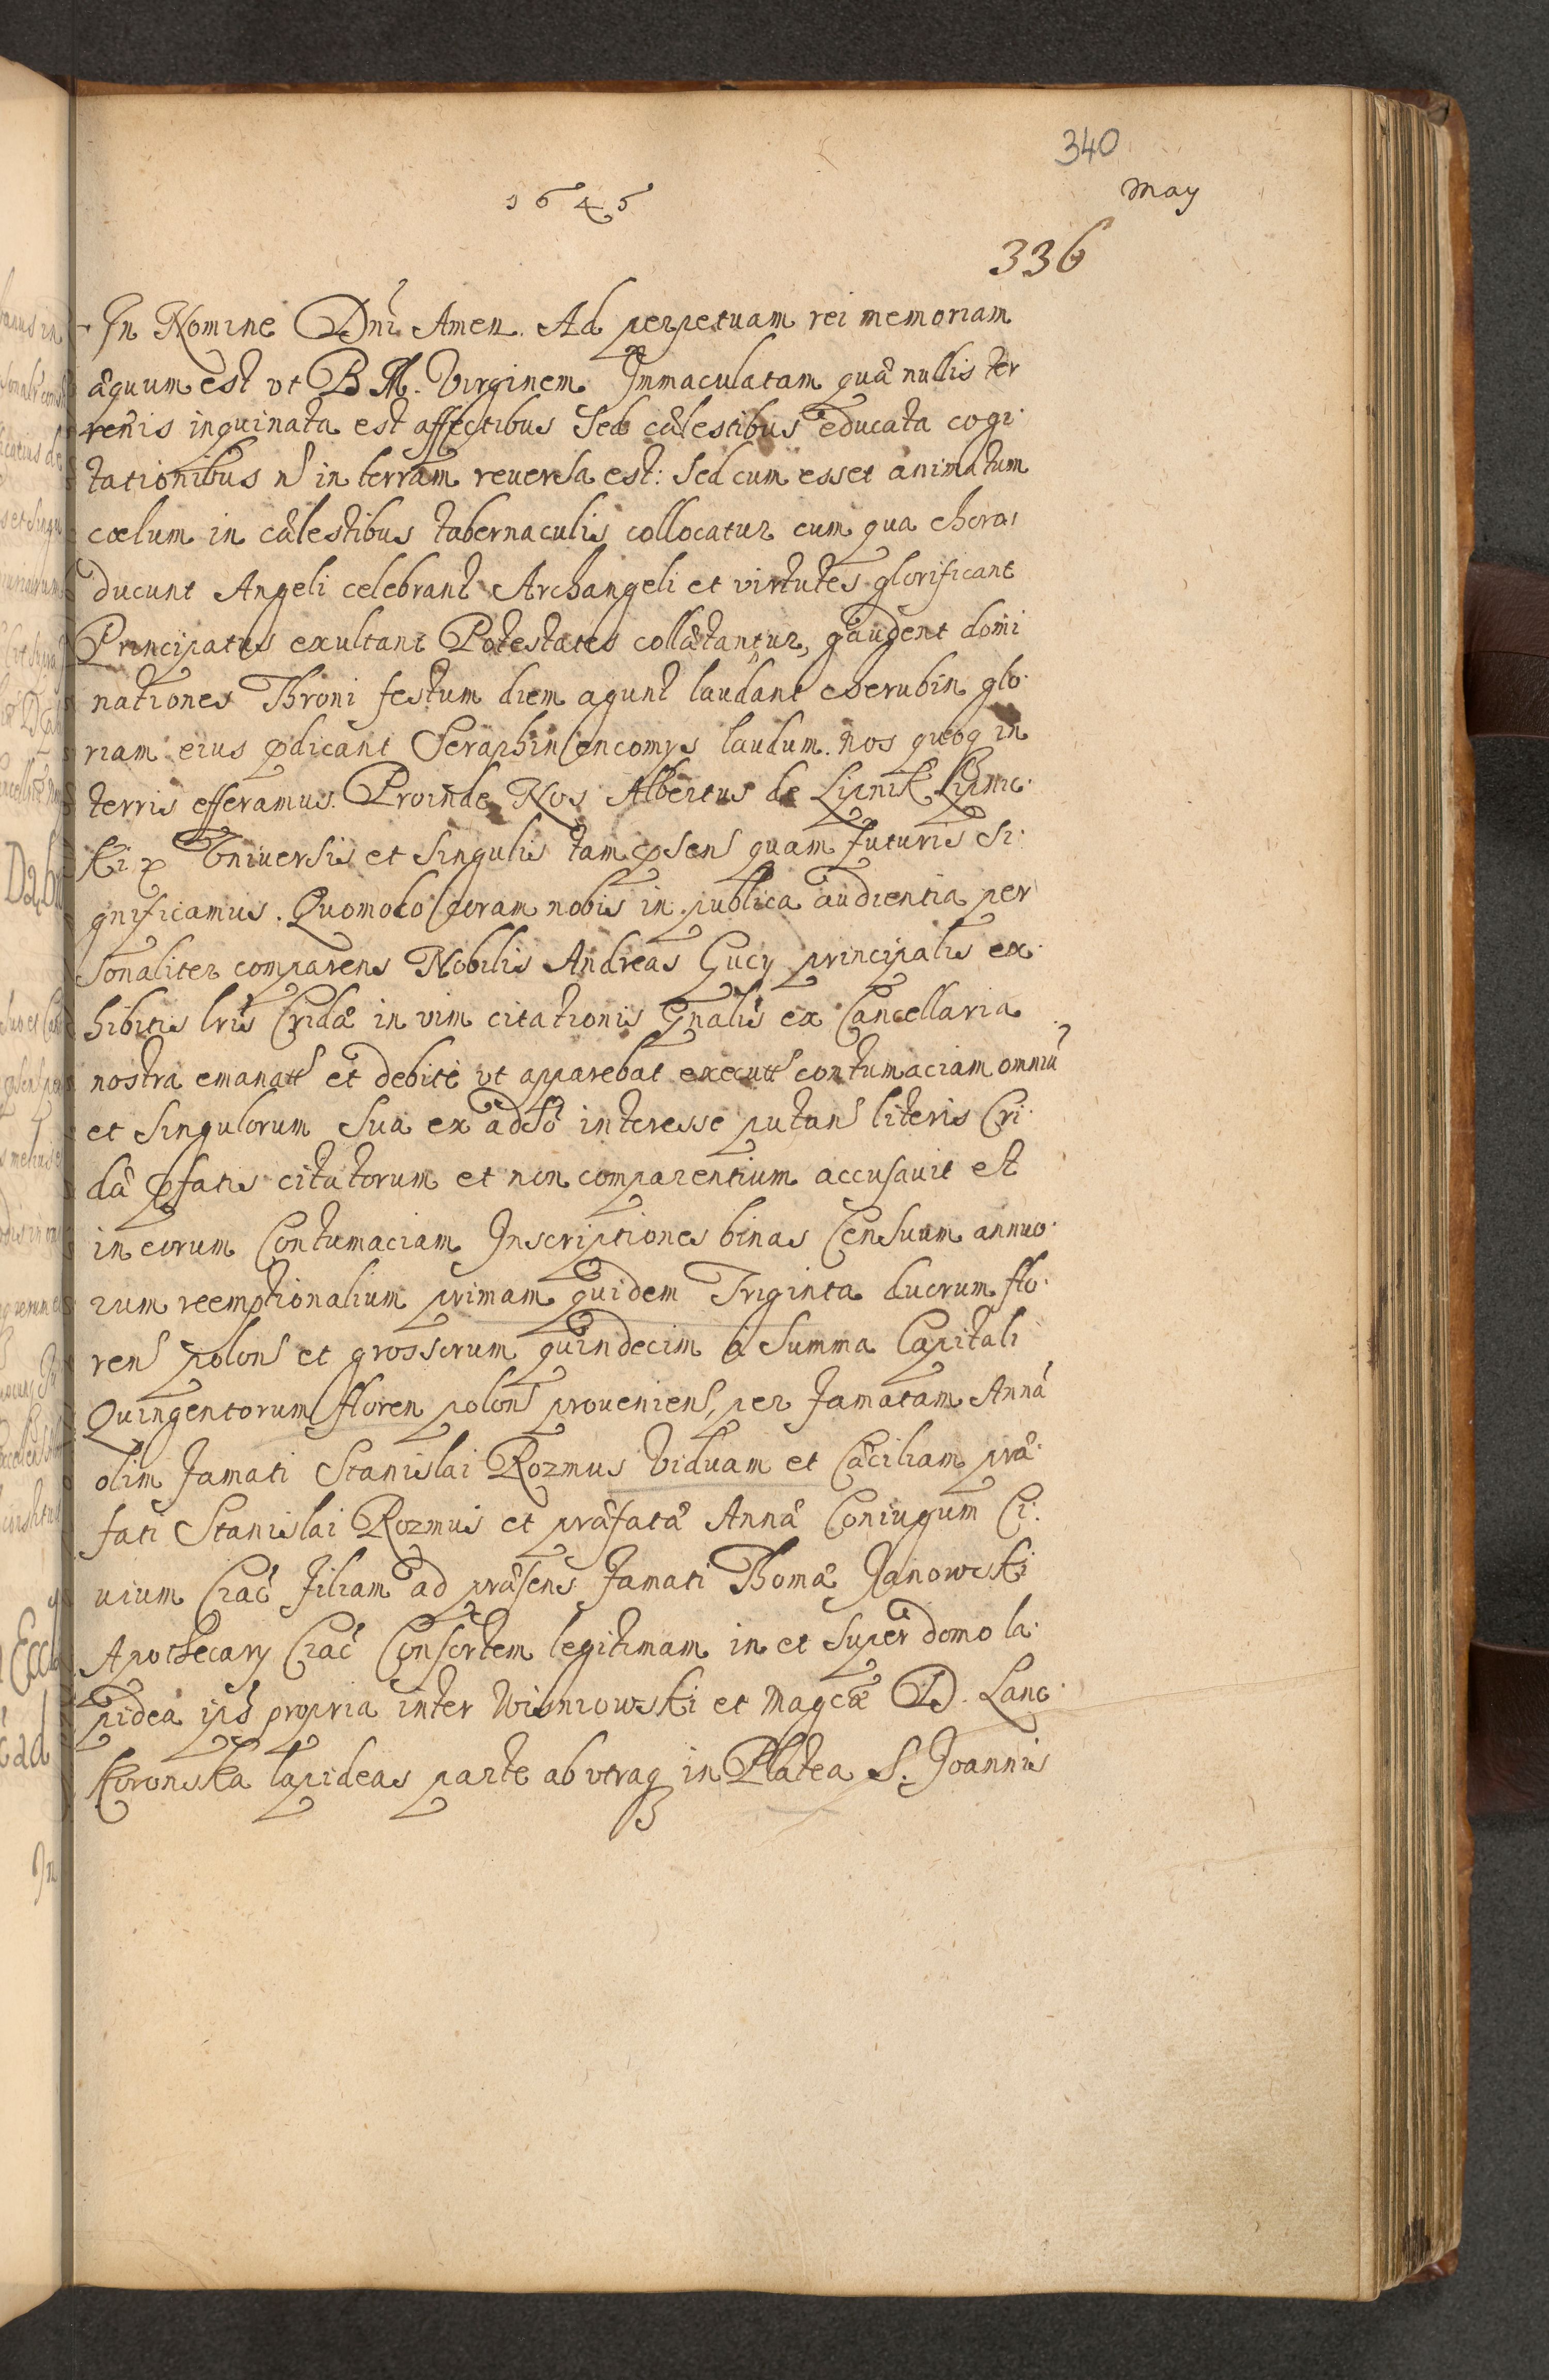 340
May
1645
336
In Nomine Dnĩ Amen. Ad perpetuam rei memoriam
æquum est vt B M. Virginem Immaculatam quæ nullis ter
renis inquinata est affectibus Sed cælestibus educata cogi
tationibus n in terram reuersa est: Sed cum esset animatum
coelum in cælestibus tabernaculis collocatur cum qua choras
ducunt Angeli celebrant Archangeli et virtutes glorificant
Principatus exultant Potestates collætantur, gaudent domi
nationes Throni festum diem agunt laudant cherubin glo
riam eius pdicant Seraphin encomys laudum. nos quoq in
terris efferamus. Proinde Nos Albertus de Lipnik Lipnic
ki Vniuersis et singulis tam psens quam futuris Si
gnificamus. Quomodo coram nobis in publica audientia per
sonaliter comparens Nobilis Andreas Gucy principalis ex
hibitis lris Cridæ in vim citationis Gnalis ex Cancellaria
nostra emanatt et debite vt apparebat executt contumaciam omniũ
et Singulorum Sua ex adso interesse putan literis Cri
dæ pfatis citatorum et non comparentium accusauit et
in eorum Contumaciam Inscriptiones binas Censuum annuo
rum reemptionalium primam quidem Triginta duorum flo
ren polon et grossorum quindecim a Summa Capitali
Quingentorum floren polon prouenien, per famatam Annã
olim famati Stanislai Rozmus viduam et Cæciliam præ
fati Stanislai Rozmus et præfatæ Annæ Coniugum Ci
uium Crac filiam ad præsens famati Thomæ Janowski
Apothecary Crac Consortem legitimam in et super domo la
pidea ips propria inter Wisniowski et Magcæ D. Lanc
koronska lapideas parte ab vtraq in Platea S. Joannis